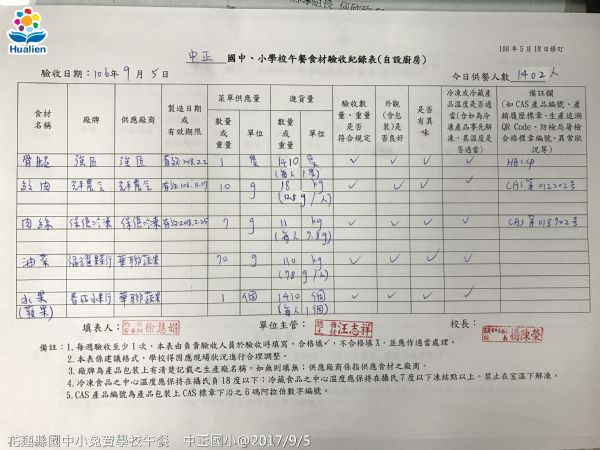 Hualien
106年5月18日修訂
中正 國中、小學校午餐食材驗收紀錄表(自設廚房)
驗收日期：106年9月5日 今日供餐人數 1402人
食材名稱 廠牌 供應廠商 製造日期或有效期限 菜單供應量 進貨量 驗收數量、重量是否符合規定 外觀(含包裝)是否良好 是否有異味 冷凍或冷藏產品溫度是否適當(含如為冷凍產品事先解凍，其溫度是否適當) 備註欄(如CAS產品編號、產銷履歷標章、生產追溯QR Code、防檢局屠檢合格標章編號、異常狀況等)
數量或重量 單位 數量或重量 單位
骨腿 強匠 強匠 有效2018.2.2 1 隻 1410 隻 ✓ ✓ ✓ ✓ HACCP
(每人1隻)
絞肉 有效:106.11.17 10 g 18 kg ✓ ✓ ✓ ✓ CAS第012202号
(12.8g/人)
肉絲 有效:2018.2.25 7 g 11 kg ✓ ✓ ✓ ✓ CAS第018702号
(每人7.8g)
油菜 華聯蔬果 70 g 110 kg ✓ ✓ ✓ ✓
(78g/人)
水果 華聯蔬果 1 個 1410 個 ✓ ✓ ✓ ✓
(蘋果) (每人1個)
填表人： 徐慧娟 單位主管： 汪志祥 校長： 楊陳榮
備註：1.每週驗收至少1次，本表由負責驗收人員於驗收時填寫，合格填✓，不合格填X，並應作適當處理。
2.本表係建議格式，學校得因應現場狀況進行合理調整。
3.廠牌為產品包裝上有清楚記載之生產廠名稱，如無則填無；供應廠商係指供應食材之廠商。
4.冷凍食品之中心溫度應保持在攝氏負18度以下；冷藏食品之中心溫度應保持在攝氏7度以下凍結點以上。禁止在室溫下解凍。
5.CAS產品編號為產品包裝上CAS標章下沿之6碼阿拉伯數字編號。
花蓮縣國中小免費學校午餐 中正國小@2017/9/5